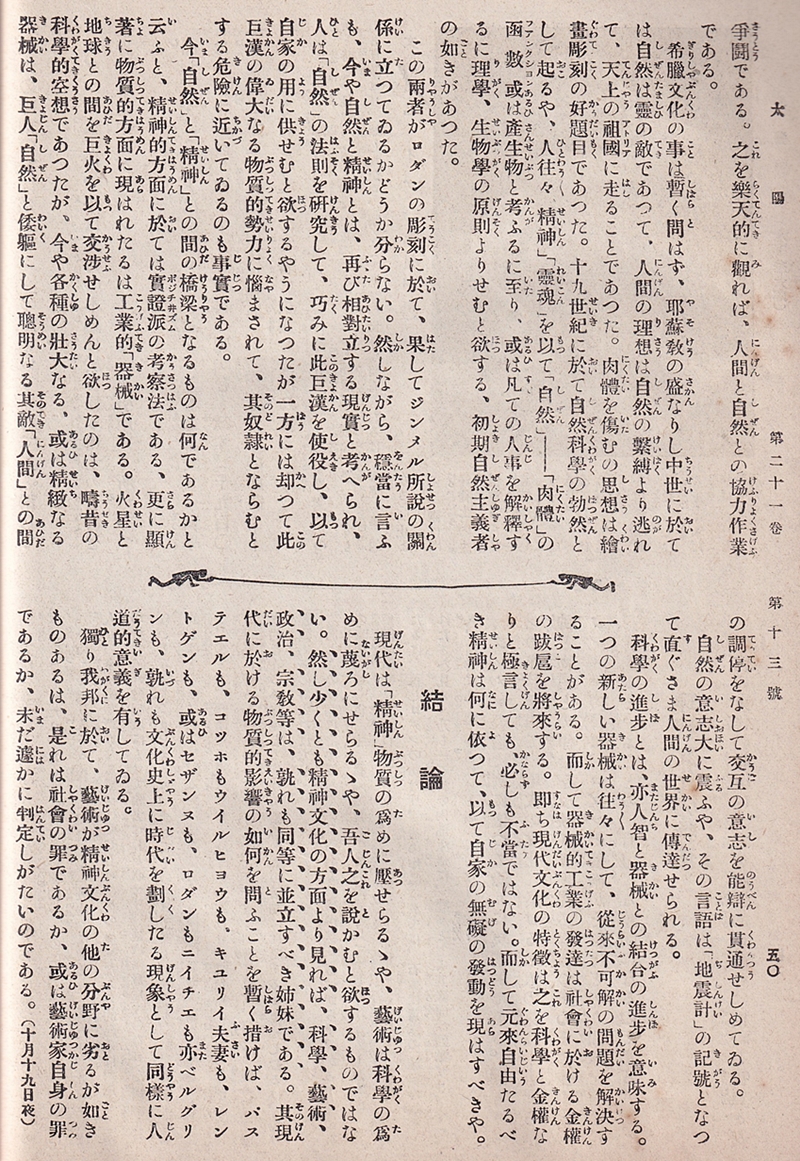 太陽 第二十一卷 第十三號 五〇
爭鬪である。之を樂天的に觀れば、人間と自然との協力作業
である。
希臘文化の事は暫く問はず、耶蘇敎の盛なりし中世に於て
は自然は靈の敵であつて、人間の理想は自然の繫縛より逃れ
て、天上の祖國に走ることであつた。肉體を傷むの思想は繪
畫彫刻の好題目であつた。十九世紀に於て自然科學の勃然と
して起るや、人往々「精神」「靈魂」を以て「自然」——「肉體」の
函數或は產生物と考ふるに至り、或は凡ての人事を解釋す
るに理學、生物學の原則よりせむと欲する、初期自然主義者
の如きがあつた。
この兩者がロダンの彫刻に於て、果してジンメル所說の關
係に立つてゐるかどうか分らない。然しながら、穩當に言ふ
も、今や自然と精神とは、再び相對立する現實と考へられ、
人は「自然」の法則を硏究して、巧みに此巨漢を使役し、以て
自家の用に供せむと欲するやうになつたが一方には却つて此
巨漢の偉大なる物質的勢力に惱まされて、其奴隸とならむと
する危險に近いてゐるのも事實である。
今「自然」と「精神」との間の橋梁となるものは何であるかと
云ふと、精神的方面に於ては實證派の考察法である、更に顯
著に物質的方面に現はれたるは工業的「器械」である。火星と
地球との間を巨火を以て交涉せしめんと欲したのは、疇昔の
科學的空想であつたが、今や各種の壯大なる、或は精緻なる
器械は、巨人「自然」と倭軀にして聰明なる其敵「人間」との間
の調停をなして交互の意志を能辯に貫通せしめてゐる。
自然の意志大に震ふや、その言語は「地震計」の記號となつ
て直ぐさま人間の世界に傳達せられる。
科學の進步とは、亦人智と器械との結合の進步を意味する。
一つの新しい器械は往々にして、從來不可解の問題を解決す
ることがある。而して器械的工業の發達は社會に於ける金權
の跋扈を將來する。卽ち現代文化の特徵は之を科學と金權な
りと極言しても、必しも不當ではない。而して元來自由たるべ
き精神は何に依つて、以て自家の無礙の發動を現はすべきや。
結論
現代は「精神」物質の爲めに壓せらるゝや、藝術は科學の爲
めに蔑ろにせらるゝや、吾人之を說かむと欲するものではな
い。然し少くとも精神文化の方面より見れば、科學、藝術、
政治、宗敎等は、孰れも同等に並立すべき姉妹である。其現
代に於ける物質的影響の如何を問ふことを暫く措けば、パス
テエルも、コツホもウイルヒヨウも、キユリイ夫妻も、レン
トゲンも、或はセザンヌも、ロダンもニイチエも亦ベルグリ
ンも、孰れも文化史上に時代を劃したる現象として同樣に人
道的意義を有してゐる。
獨り我邦に於て、藝術が精神文化の他の分野に劣るが如き
ものあるは、是れは社會の罪であるか、或は藝術家自身の罪
であるか、未だ遽かに判定しがたいのである。(十月十九日夜)